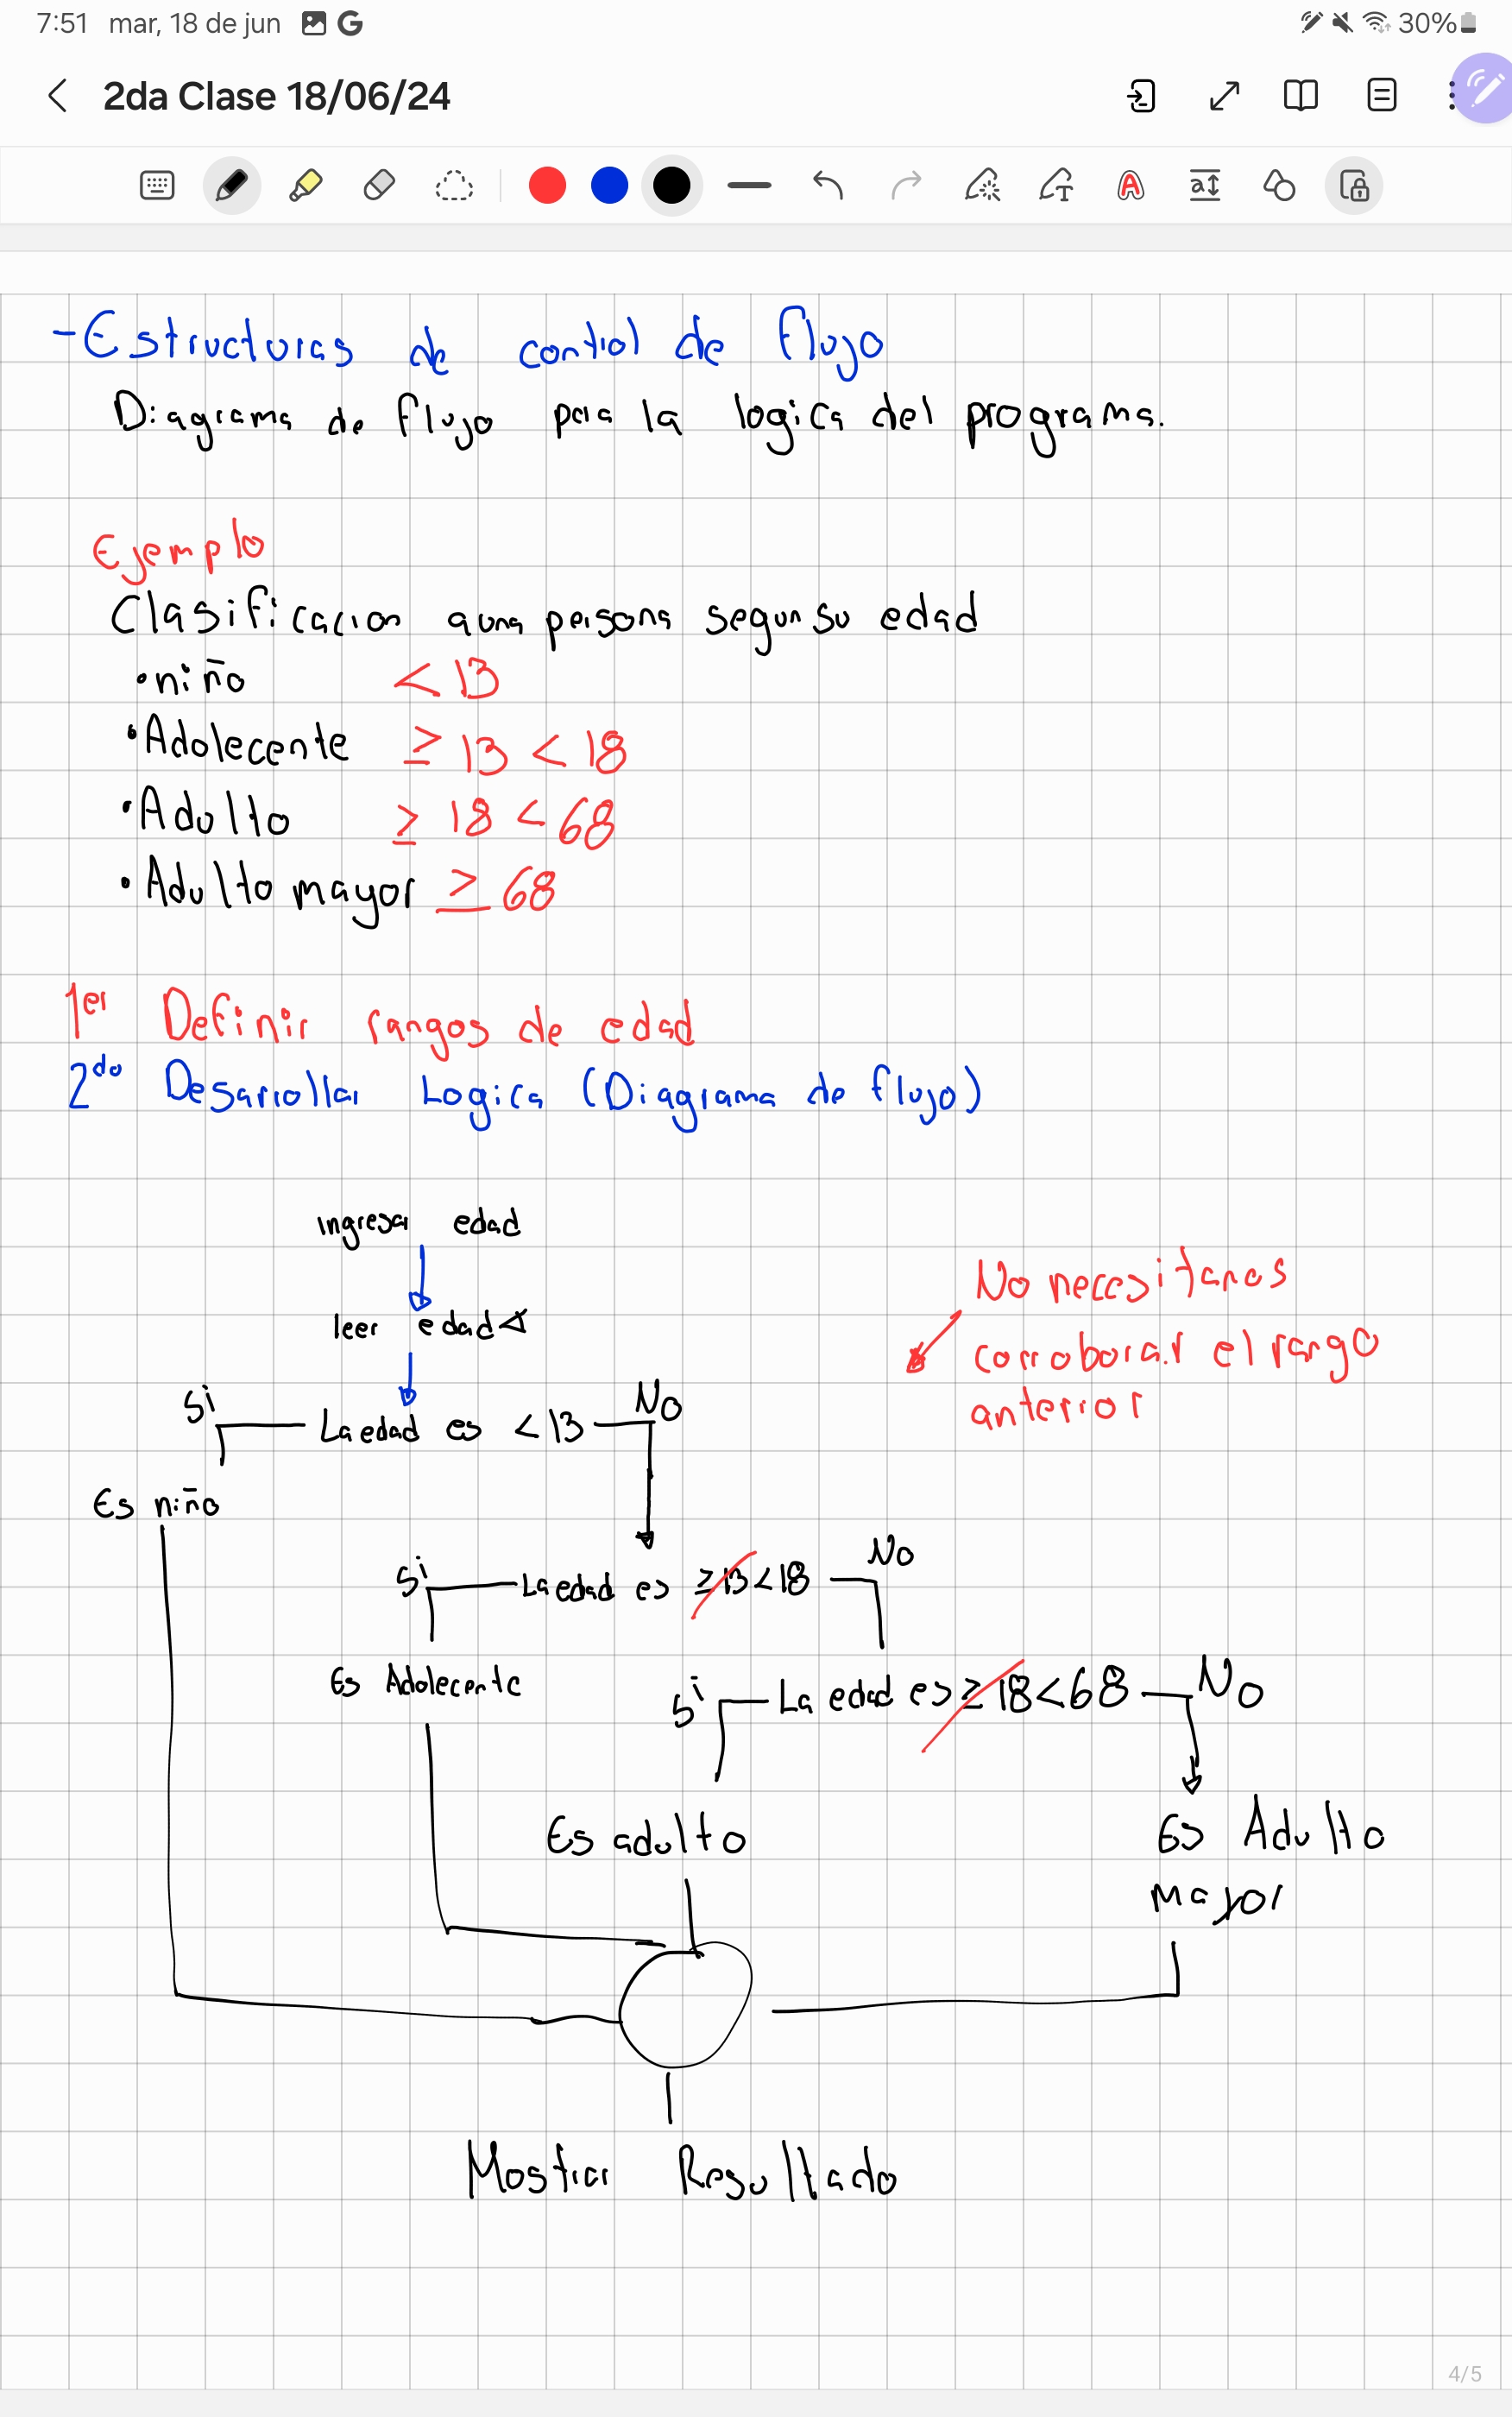 7:51 mar, 18 de jun G 30%
2da Clase 18/06/24
-Estructuras de control de flujo
Diagrama de flujo para la logica del programa.
Ejemplo
Clasificacion a una persona segun su edad
• niño < 13
• Adolecente ≥ 13 < 18
• Adulto ≥ 18 < 68
• Adulto mayor ≥ 68
1er Definir rangos de edad
2do Desarrollar Logica (Diagrama de flujo)
ingresar edad
leer edad
No necesitamos
corroborar el rango
anterior
Si La edad es < 13 No
Es niño
Si La edad es ≥13 < 18 No
Es Adolecente
Si La edad es ≥ 18 < 68 No
Es adulto
Es Adulto
Mayor
Mostrar Resultado
4/5